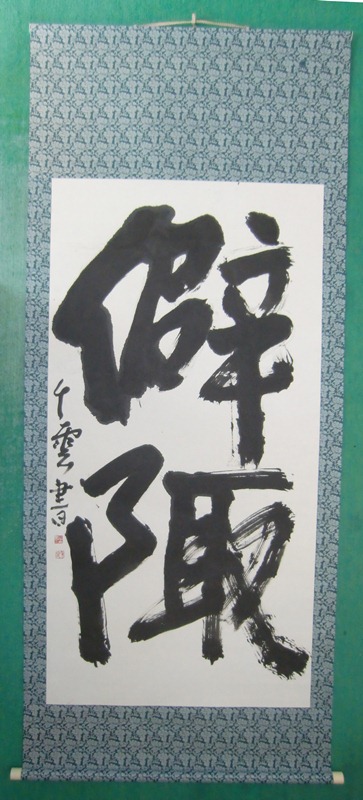 僻陬
千雲書